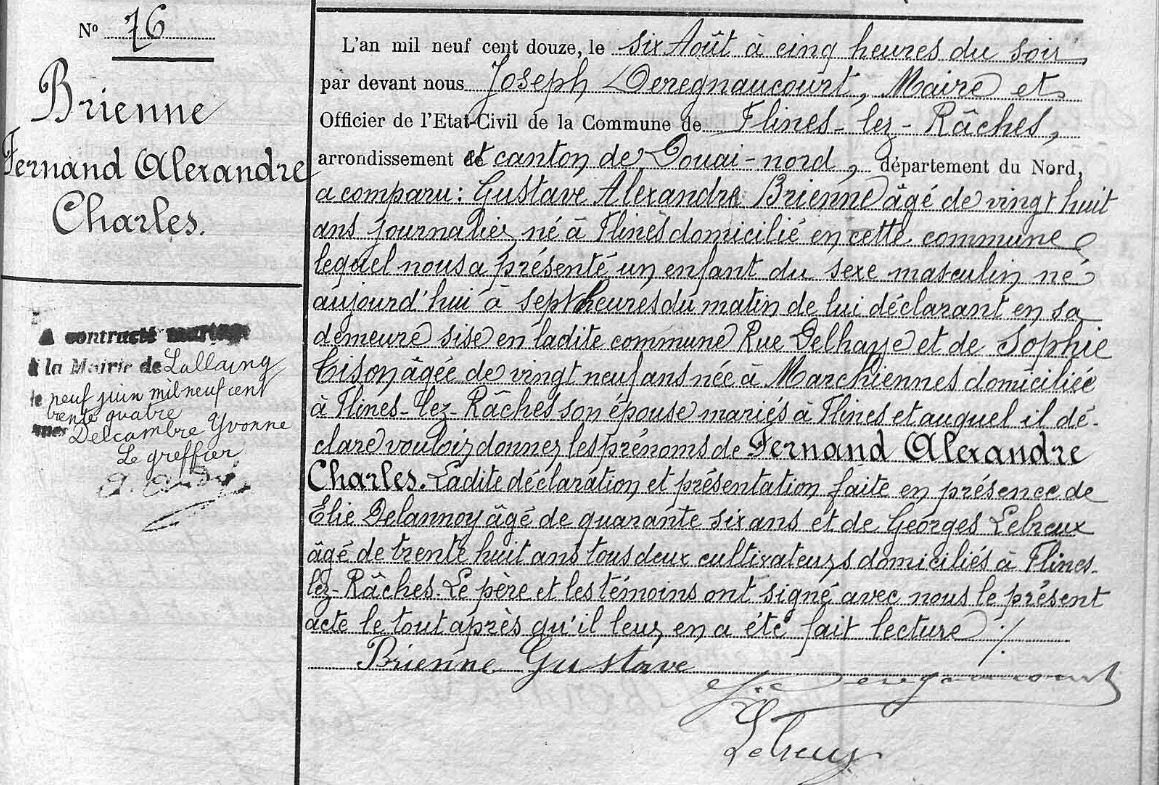 N° 76
Brienne
Fernand Alexandre
Charles.
A contracté mariage
à la Mairie de Lallaing
le neuf juin mil neuf cent
trente quatre
avec Delcambre Yvonne
Le greffier
L'an mil neuf cent douze, le six Août à cinq heures du soir
par devant nous Joseph Deregnaucourt, Maire et
Officier de l'Etat-Civil de la Commune de Flines-lez-Râches,
arrondissement et canton de Douai-nord, département du Nord,
a comparu : Gustave Alexandre Brienne âgé de vingt huit
ans journalier né à Flines domicilié en cette commune
lequel nous a présenté un enfant du sexe masculin né
aujourd'hui à sept heures du matin de lui déclarant en sa
demeure sise en ladite commune Rue Delhaye et de Sophie
Tison âgée de vingt neuf ans née à Marchiennes domiciliée
à Flines-lez-Râches son épouse mariés à Flines et auquel il dé-
clare vouloir donner les prénoms de Fernand Alexandre
Charles. Ladite déclaration et présentation faite en présence de
Elie Delannoy âgé de quarante six ans et de Georges Lebreux
âgé de trente huit ans tous deux cultivateurs domiciliés à Flines-
lez-Râches. Le père et les témoins ont signé avec nous le présent
acte le tout après qu'il leur en a été fait lecture ./.
Brienne Gustave
Deregnaucourt
Lebreux